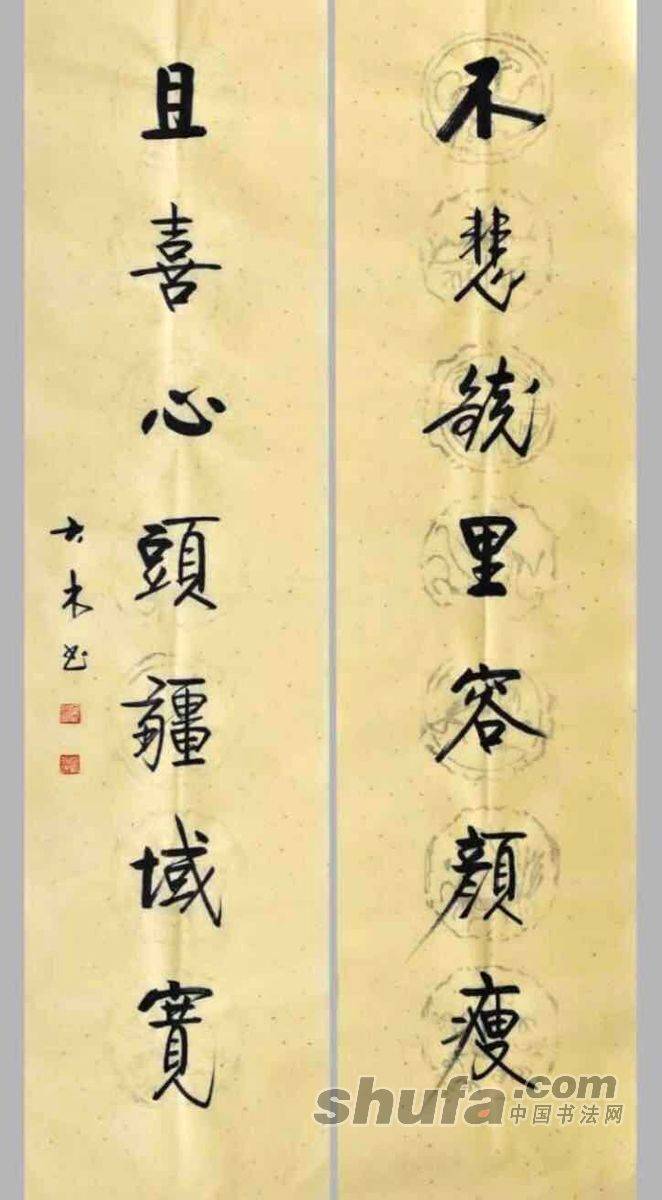 不悲鏡里容顏瘦
且喜心頭疆域寬
大木书
shufa.com
中国书法网